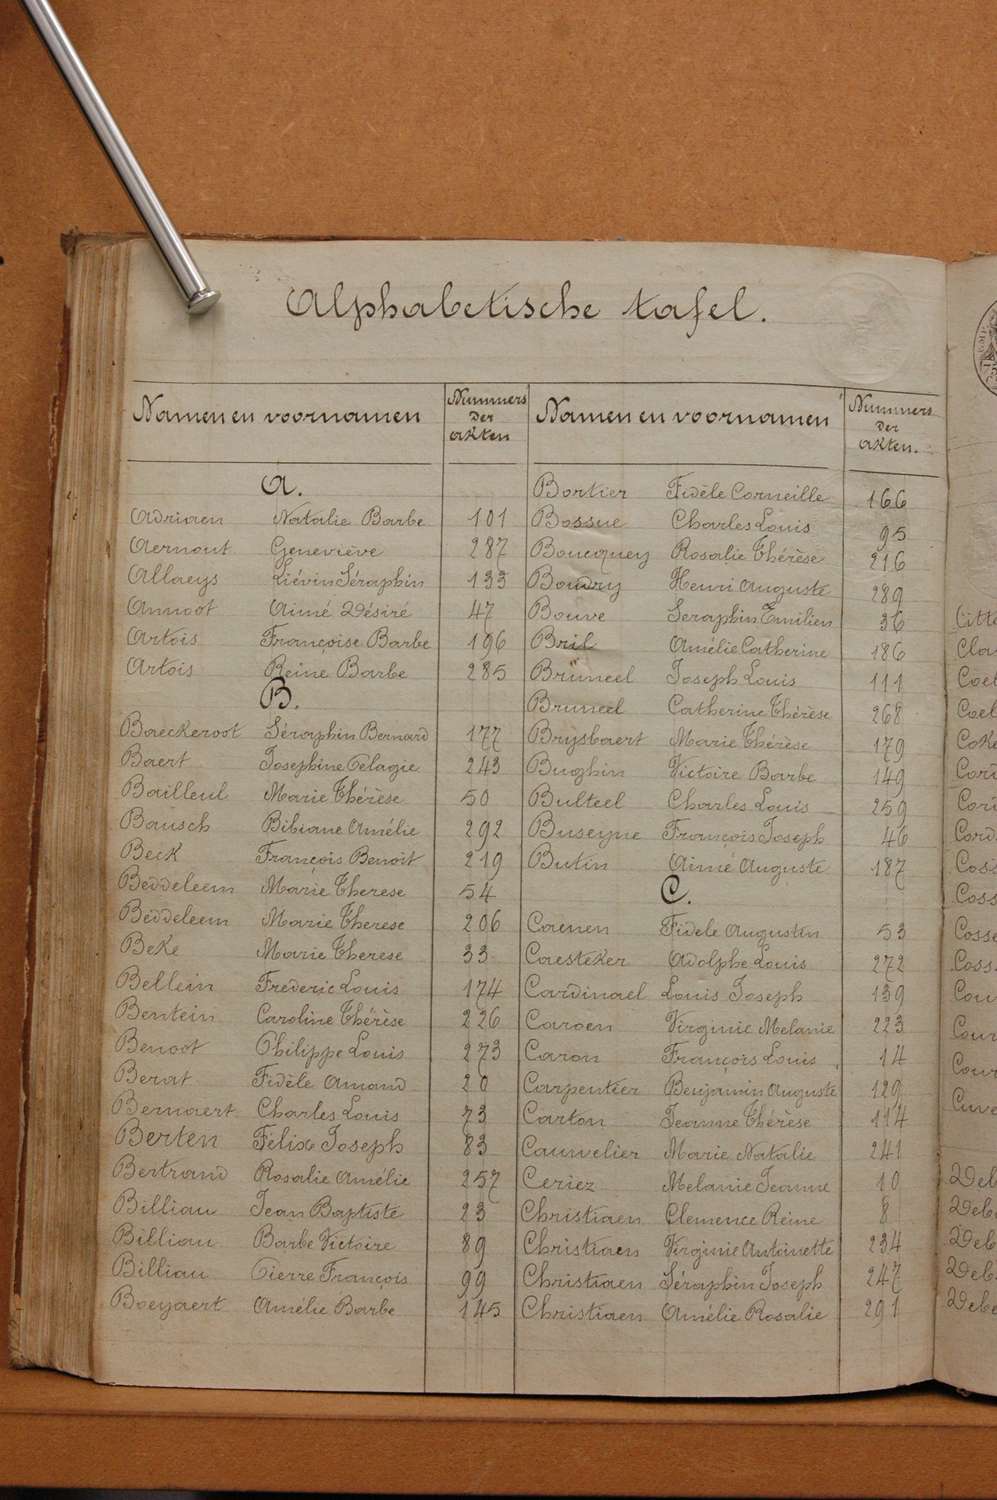 Alphabetische tafel.
Namen en voornamen
Nummers
der
akten
A.
Adriaen Natalie Barbe 101
Aernout Geneviève 287
Allaeys Liévin Séraphin 133
Annoot Aimé Désiré 47
Artois Françoise Barbe 196
Artois Reine Barbe 285
B.
Baeckeroot Séraphin Bernard 177
Baert Josephine Pélagie 243
Bailleul Marie Thérèse 50
Bausch Bibiane Amélie 292
Beck François Benoit 219
Beddeleem Marie Therese 54
Beddeleem Marie Therese 206
Beke Marie Therese 33
Bellein Frederic Louis 174
Bentein Caroline Thérèse 226
Benoot Philippe Louis 273
Berat Fidèle Amand 20
Bernaert Charles Louis 73
Berten Félix Joseph 83
Bertrand Rosalie Amélie 257
Billiau Jean Baptiste 23
Billiau Barbe Victoire 89
Billiau Pierre François 99
Boeyaert Amélie Barbe 145
Namen en voornamen
Nummers
der
akten.
Bortier Fidèle Corneille 166
Bossue Charles Louis 95
Boucquey Rosalie Thérèse 216
Boudry Henri Auguste 289
Bouve Seraphin Emilien 36
Bril Amélie Catherine 186
Bruneel Joseph Louis 111
Bruneel Catherine Thérèse 268
Brysbaert Marie Thérèse 179
Bughin Victoire Barbe 149
Bulteel Charles Louis 259
Buseyne François Joseph 46
Butin Aimé Auguste 187
C.
Caenen Fidele Augustin 53
Caesteker Adolphe Louis 272
Cardinael Louis Joseph 139
Caroen Virginie Melanie 223
Caron François Louis 14
Carpentier Benjamin Auguste 129
Carton Jeanne Thérèse 114
Cauwelier Marie Natalie 241
Ceriez Melanie Jeanne 10
Christiaen Clemence Reine 8
Christiaen Virginie Antoinette 234
Christiaen Séraphin Joseph 247
Christiaen Amélie Rosalie 291